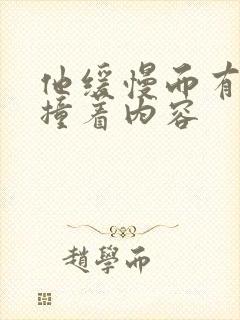 他缓慢而有
撞着内容
趙學而